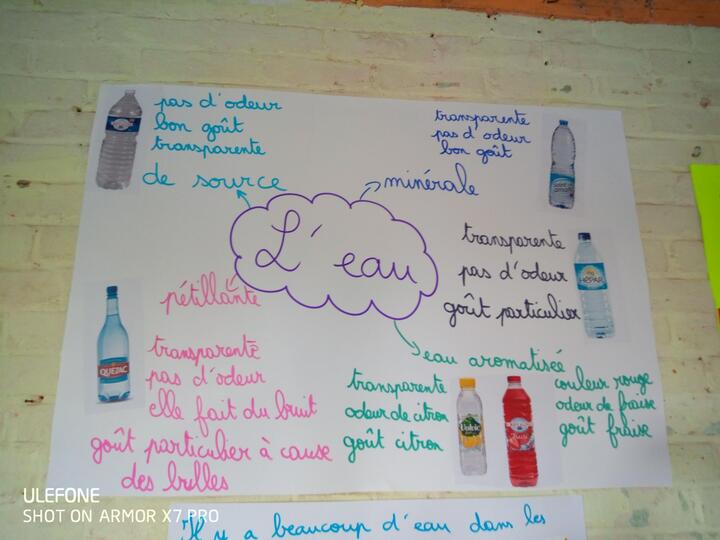 pas d'odeur
bon goût
transparente
de source
transparente
pas d'odeur
bon goût
minérale
L'eau
transparente
pas d'odeur
goût particulier
HÉPAR
pétillante
transparente
pas d'odeur
elle fait du bruit
goût particulier à cause
des bulles
QUÉZAC
eau aromatisée
transparente
odeur de citron
goût citron
Volvic
couleur rouge
odeur de fraise
goût fraise
Il y a beaucoup d'eau dans les
ULEFONE
SHOT ON ARMOR X7 PRO